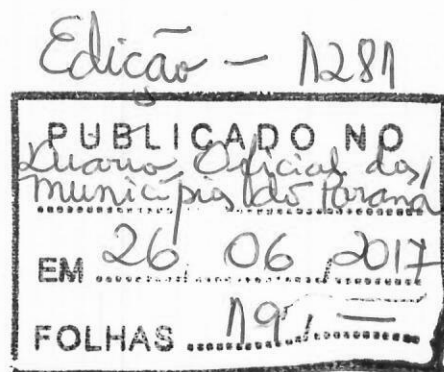 Edição - 1281
PUBLICADO NO
Diario Oficial dos
Municípios do Paraná
EM 26 / 06 / 2017
FOLHAS 19 / —